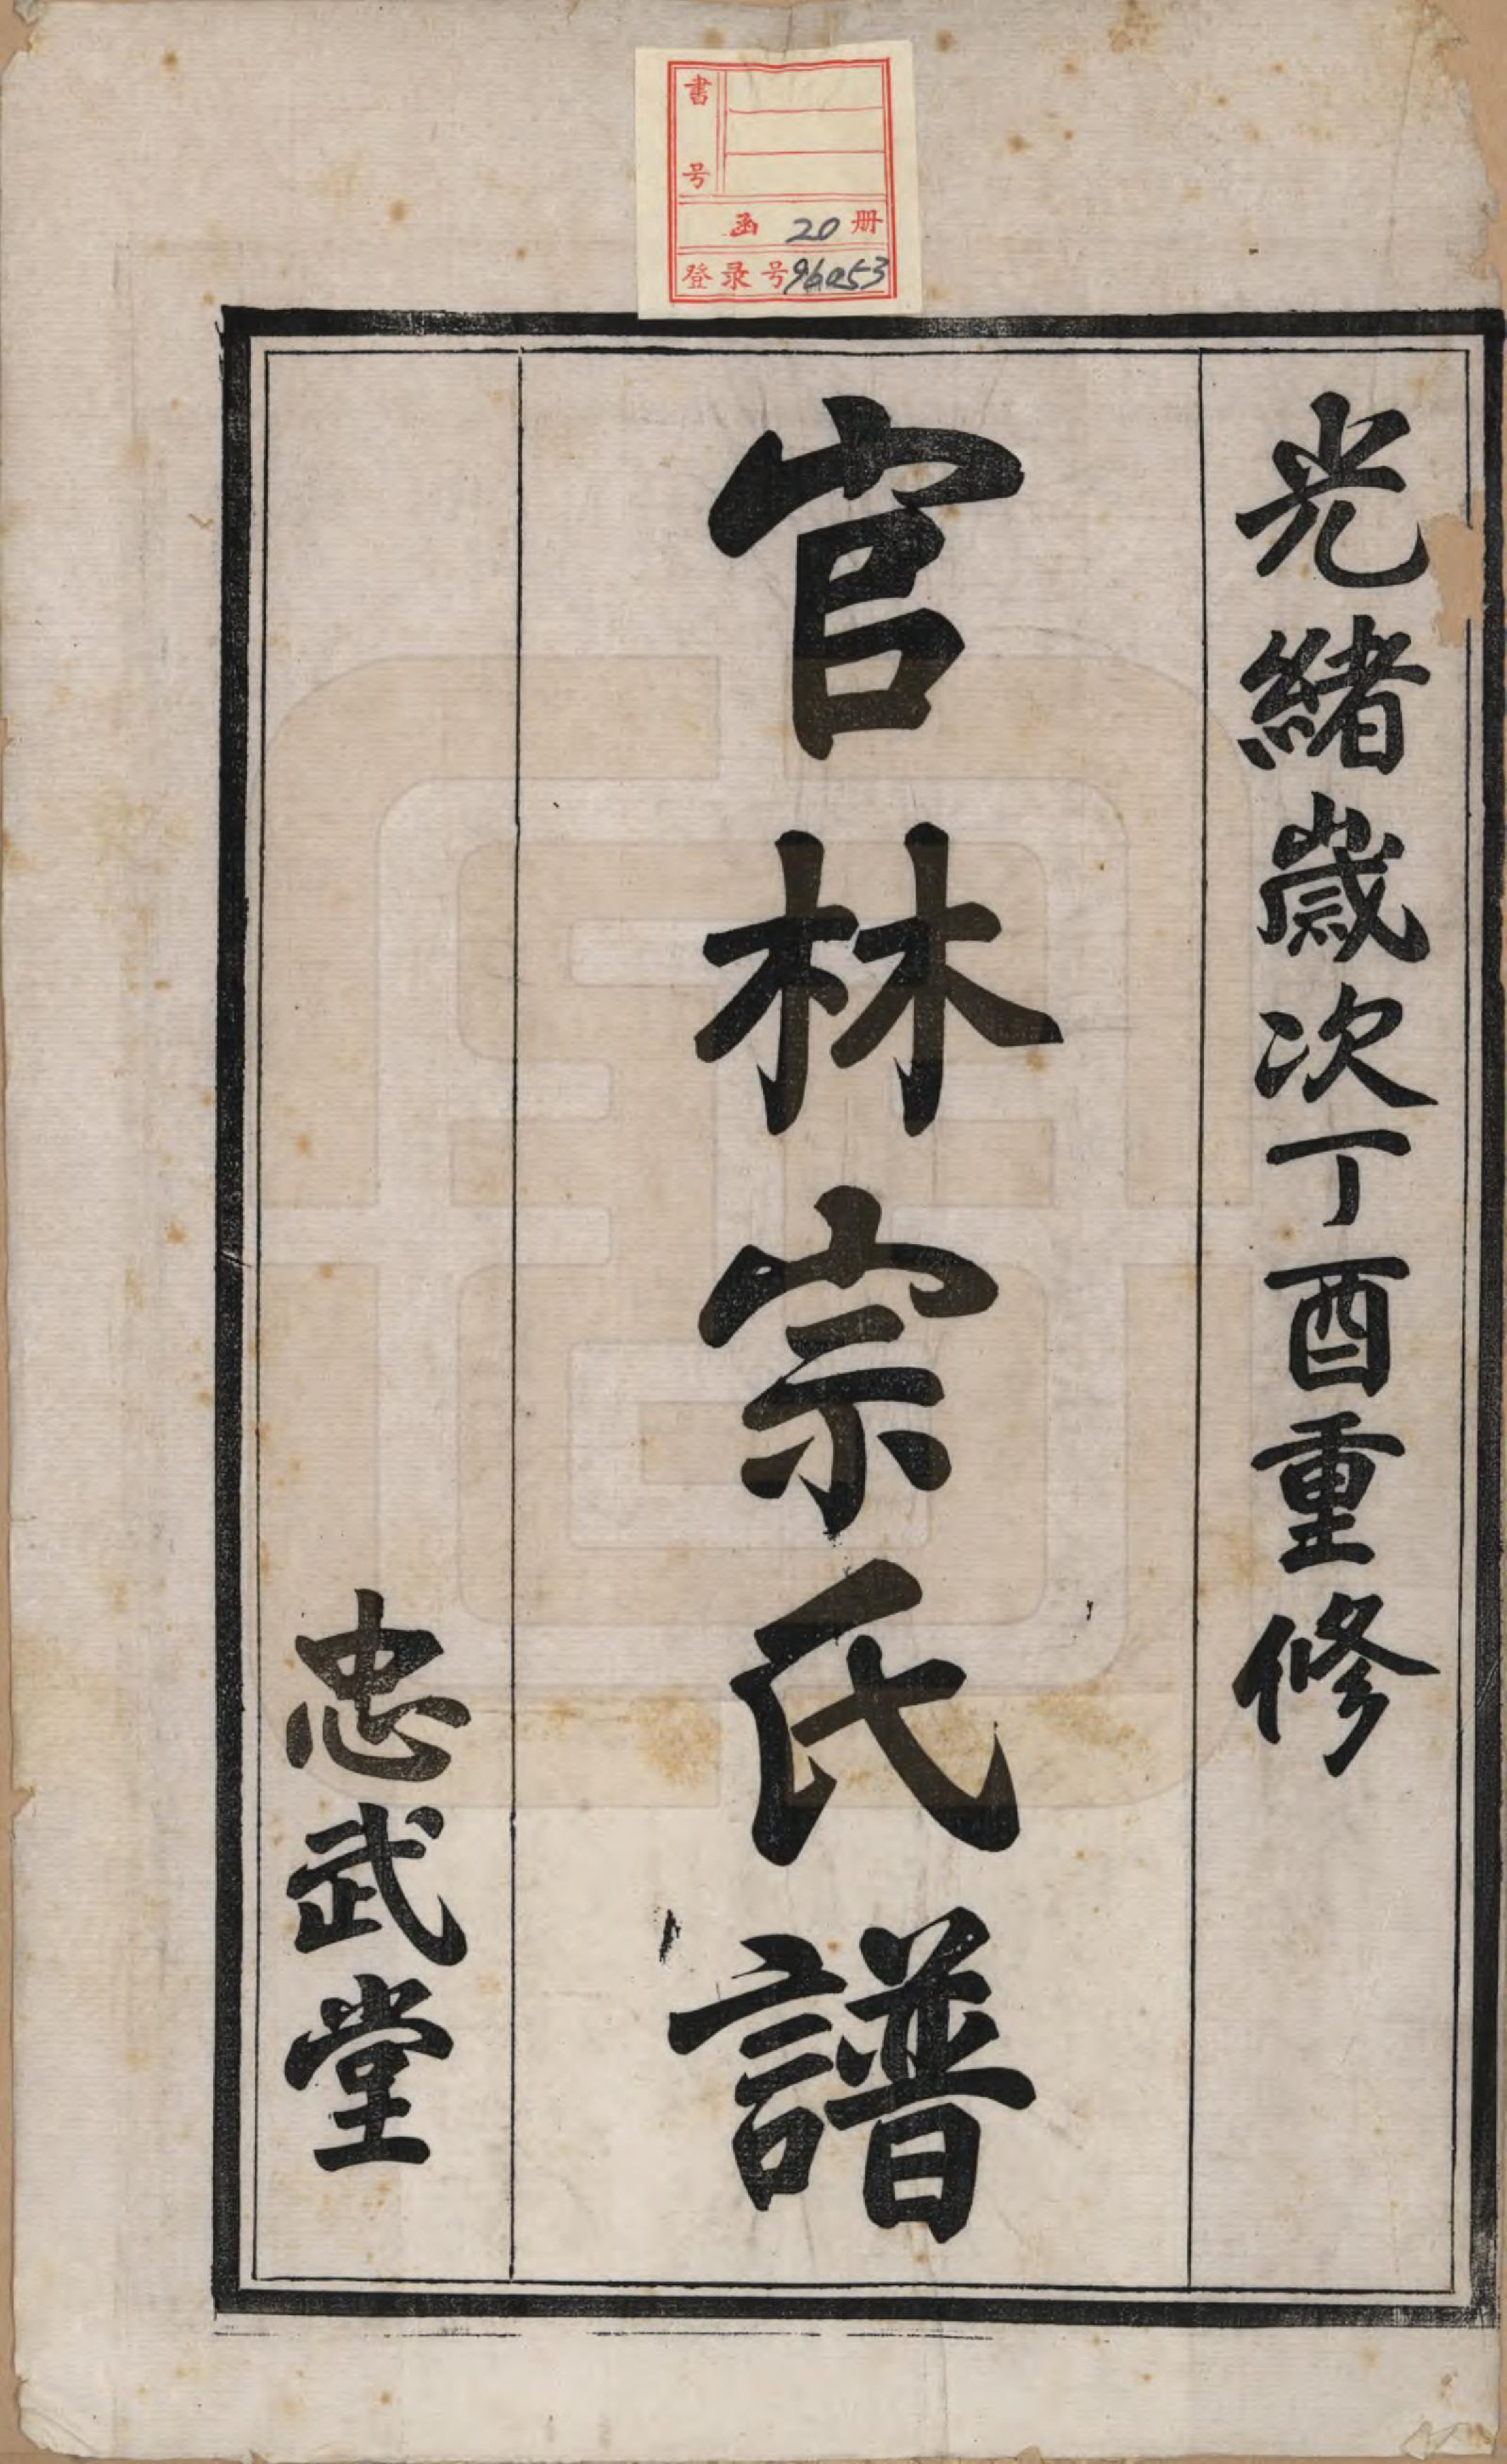 書号
函 20 册
登录号96053
光緒歲次丁酉重修
官林宗氏譜
忠武堂